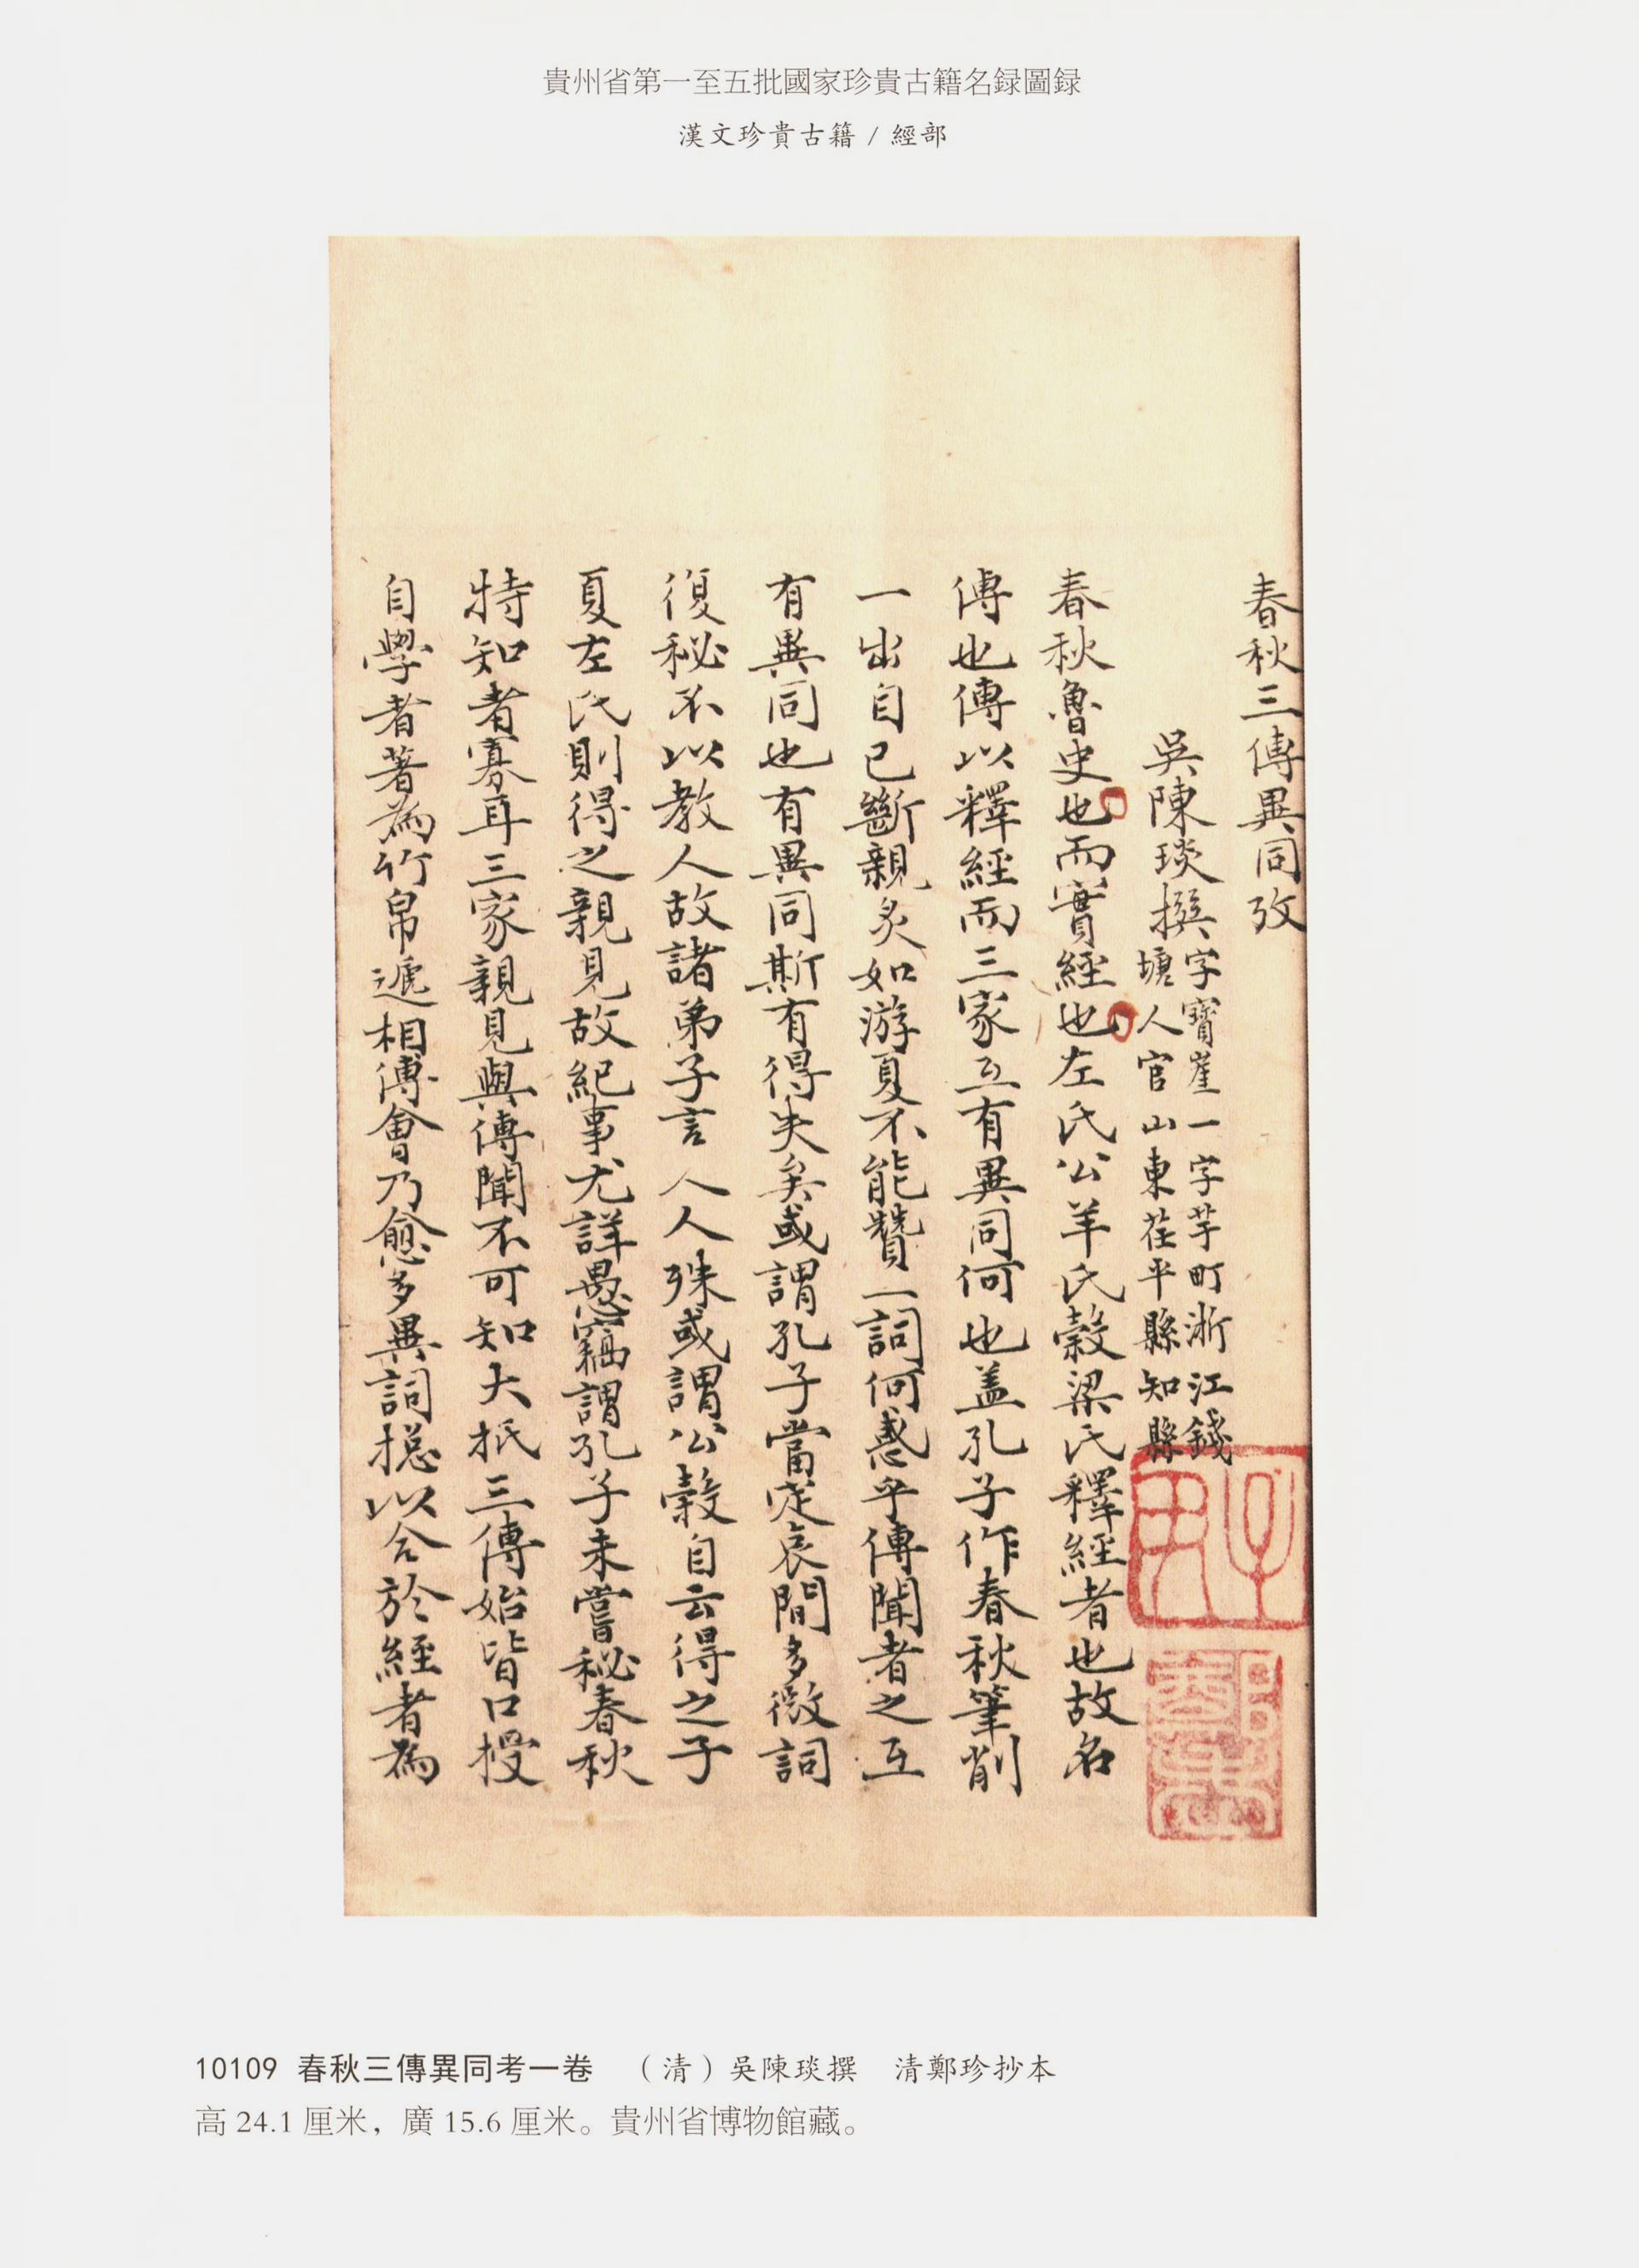 貴州省第一至五批國家珍貴古籍名録圖録
漢文珍貴古籍 / 經部
春秋三傳異同攷
吳陳琰撰字寶崖一字芋町浙江錢
塘人官山東茌平縣知縣
春秋魯史也而實經也左氏公羊氏穀梁氏釋經者也故名
傳也傳以釋經而三家互有異同何也盖孔子作春秋筆削
一出自已斷親炙如游夏不能贊一詞何惑乎傳聞者之互
有異同也有異同斯有得失矣或謂孔子當定哀間多微詞
復秘不以教人故諸弟子言人人殊或謂公穀自云得之子
夏左氏則得之親見故紀事尤詳愚竊謂孔子未嘗秘春秋
特知者寡耳三家親見與傳聞不可知大抵三傳始皆口授
自學者著為竹帛遞相傅會乃愈多異詞揔以合於經者為
10109 春秋三傳異同考一卷 （清）吳陳琰撰 清鄭珍抄本
高 24.1 厘米，廣 15.6 厘米。貴州省博物館藏。